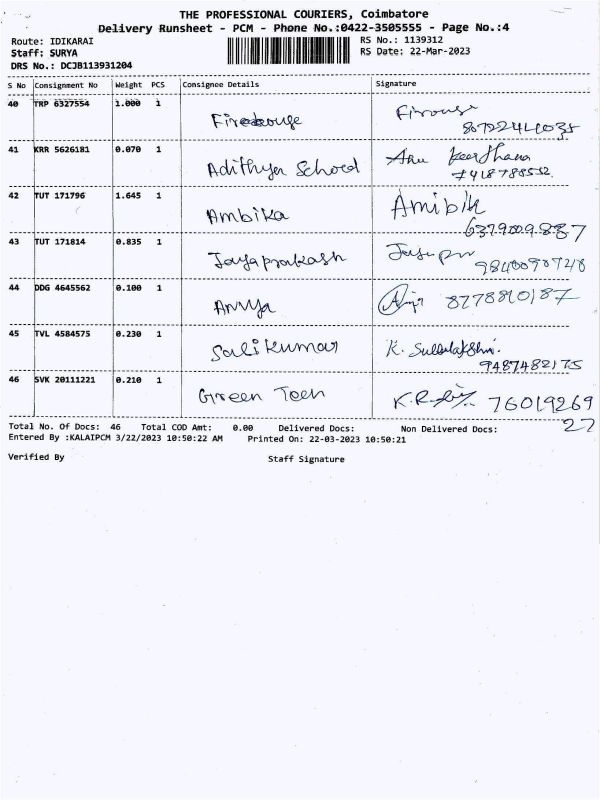 THE PROFESSIONAL COURIERS, Coimbatore
Delivery Runsheet - PCM - Phone No.:0422-3505555 - Page No.:4
Route: IDIKARAI RS No.: 1139312
Staff: SURYA RS Date: 22-Mar-2023
DRS No.: DCJB113931204
S No Consignment No Weight PCS Consignee Details Signature
40 TRP 6327554 1.000 1
41 KRR 5626181 0.070 1 Adithya School
42 TUT 171796 1.645 1 Ambika Amibik
43 TUT 171814 0.835 1 Jayaprakash
44 DDG 4645562 0.100 1
45 TVL 4584575 0.230 1 9487482175
46 SVK 20111221 0.210 1 Green Tech 76019269
27
Total No. Of Docs: 46 Total COD Amt: 0.00 Delivered Docs: Non Delivered Docs:
Entered By :KALAIPCM 3/22/2023 10:50:22 AM Printed On: 22-03-2023 10:50:21
Verified By Staff Signature